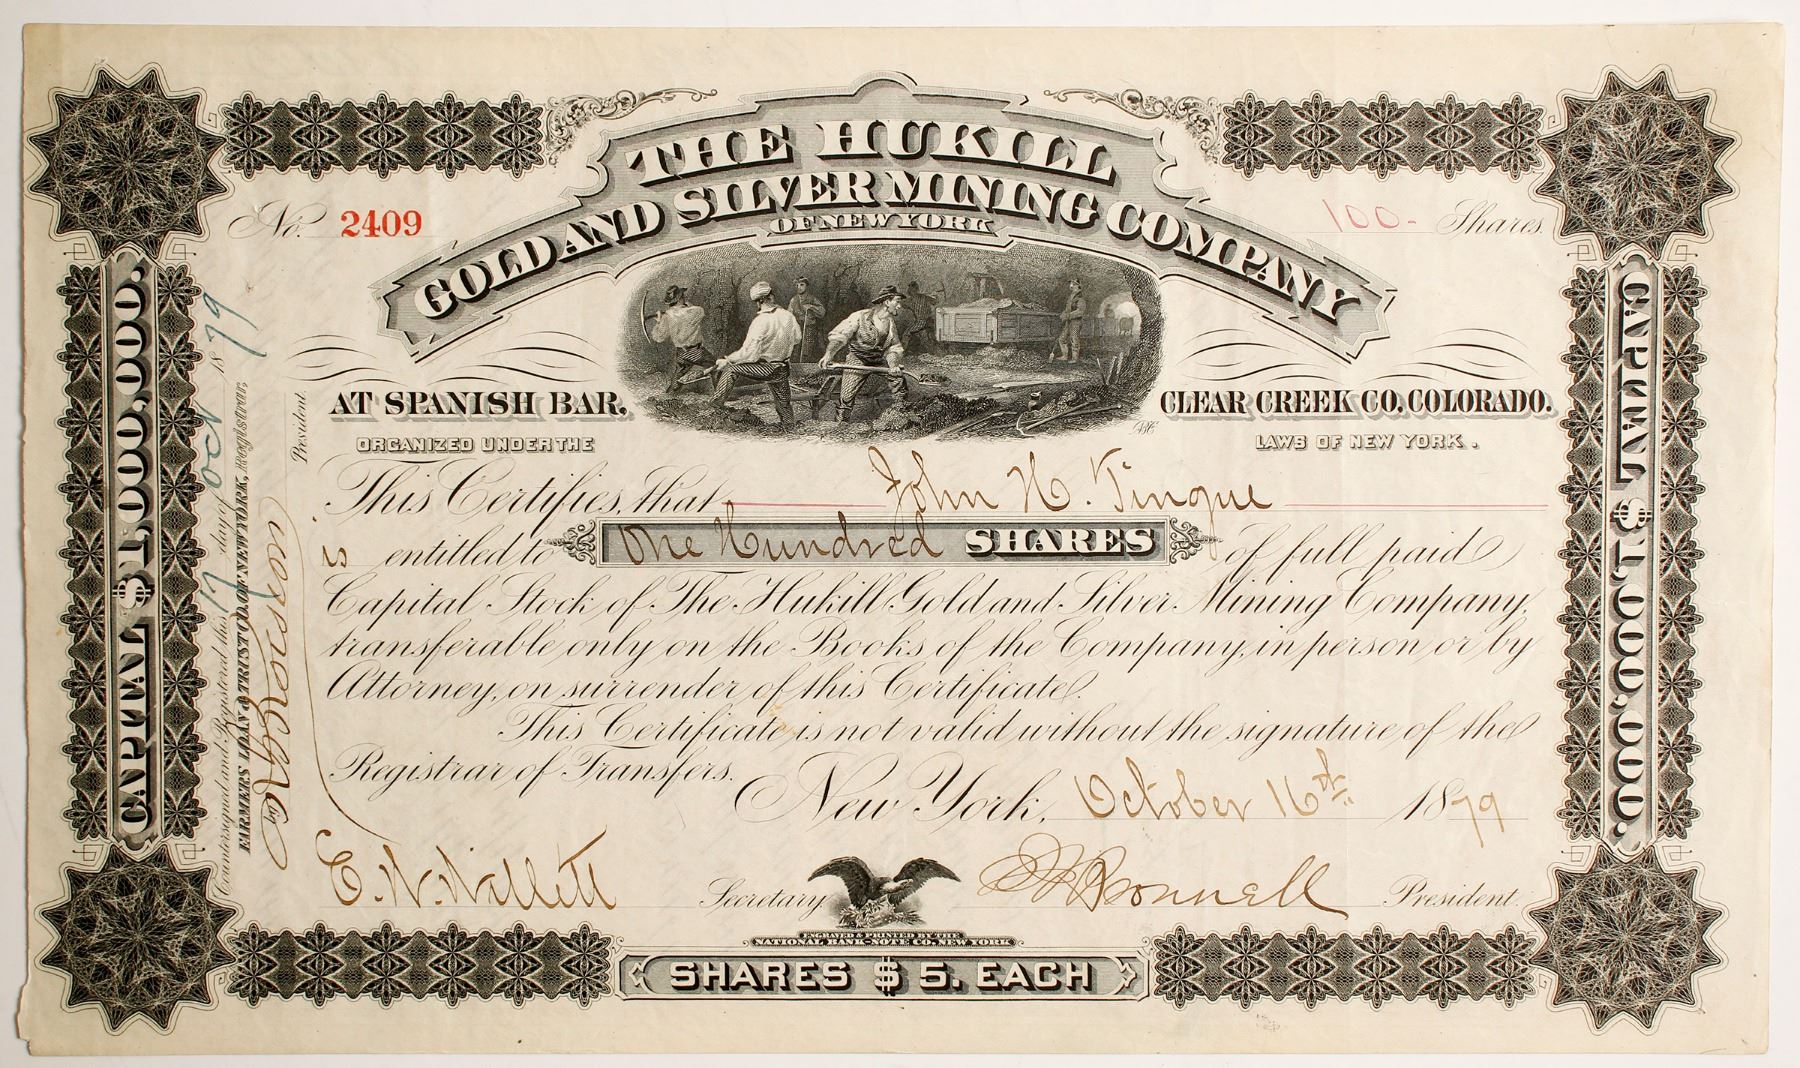 THE HUKILL
GOLD AND SILVER MINING COMPANY
OF NEW YORK
No. 2409
100- Shares
AT SPANISH BAR,
CLEAR CREEK CO, COLORADO.
ORGANIZED UNDER THE
LAWS OF NEW YORK.
This Certifies, that John H. Tingue
is entitled to One Hundred SHARES of full paid
Capital Stock of The Hukill Gold and Silver Mining Company,
transferable only on the Books of the Company, in person or by
Attorney, on surrender of this Certificate.
This Certificate is not valid without the signature of the
Registrar of Transfers.
New York, October 16th 1879
E. W. Willett Secretary
President.
ENGRAVED & PRINTED BY THE
NATIONAL BANK-NOTE CO. NEW YORK
SHARES $5. EACH
CAPITAL $1,000,000.
CAPITAL $1,000,000.
Countersigned and Registered this 17 day of Oct 1879
FARMERS LOAN & TRUST CO. OF NEW YORK, Registrar,
President.